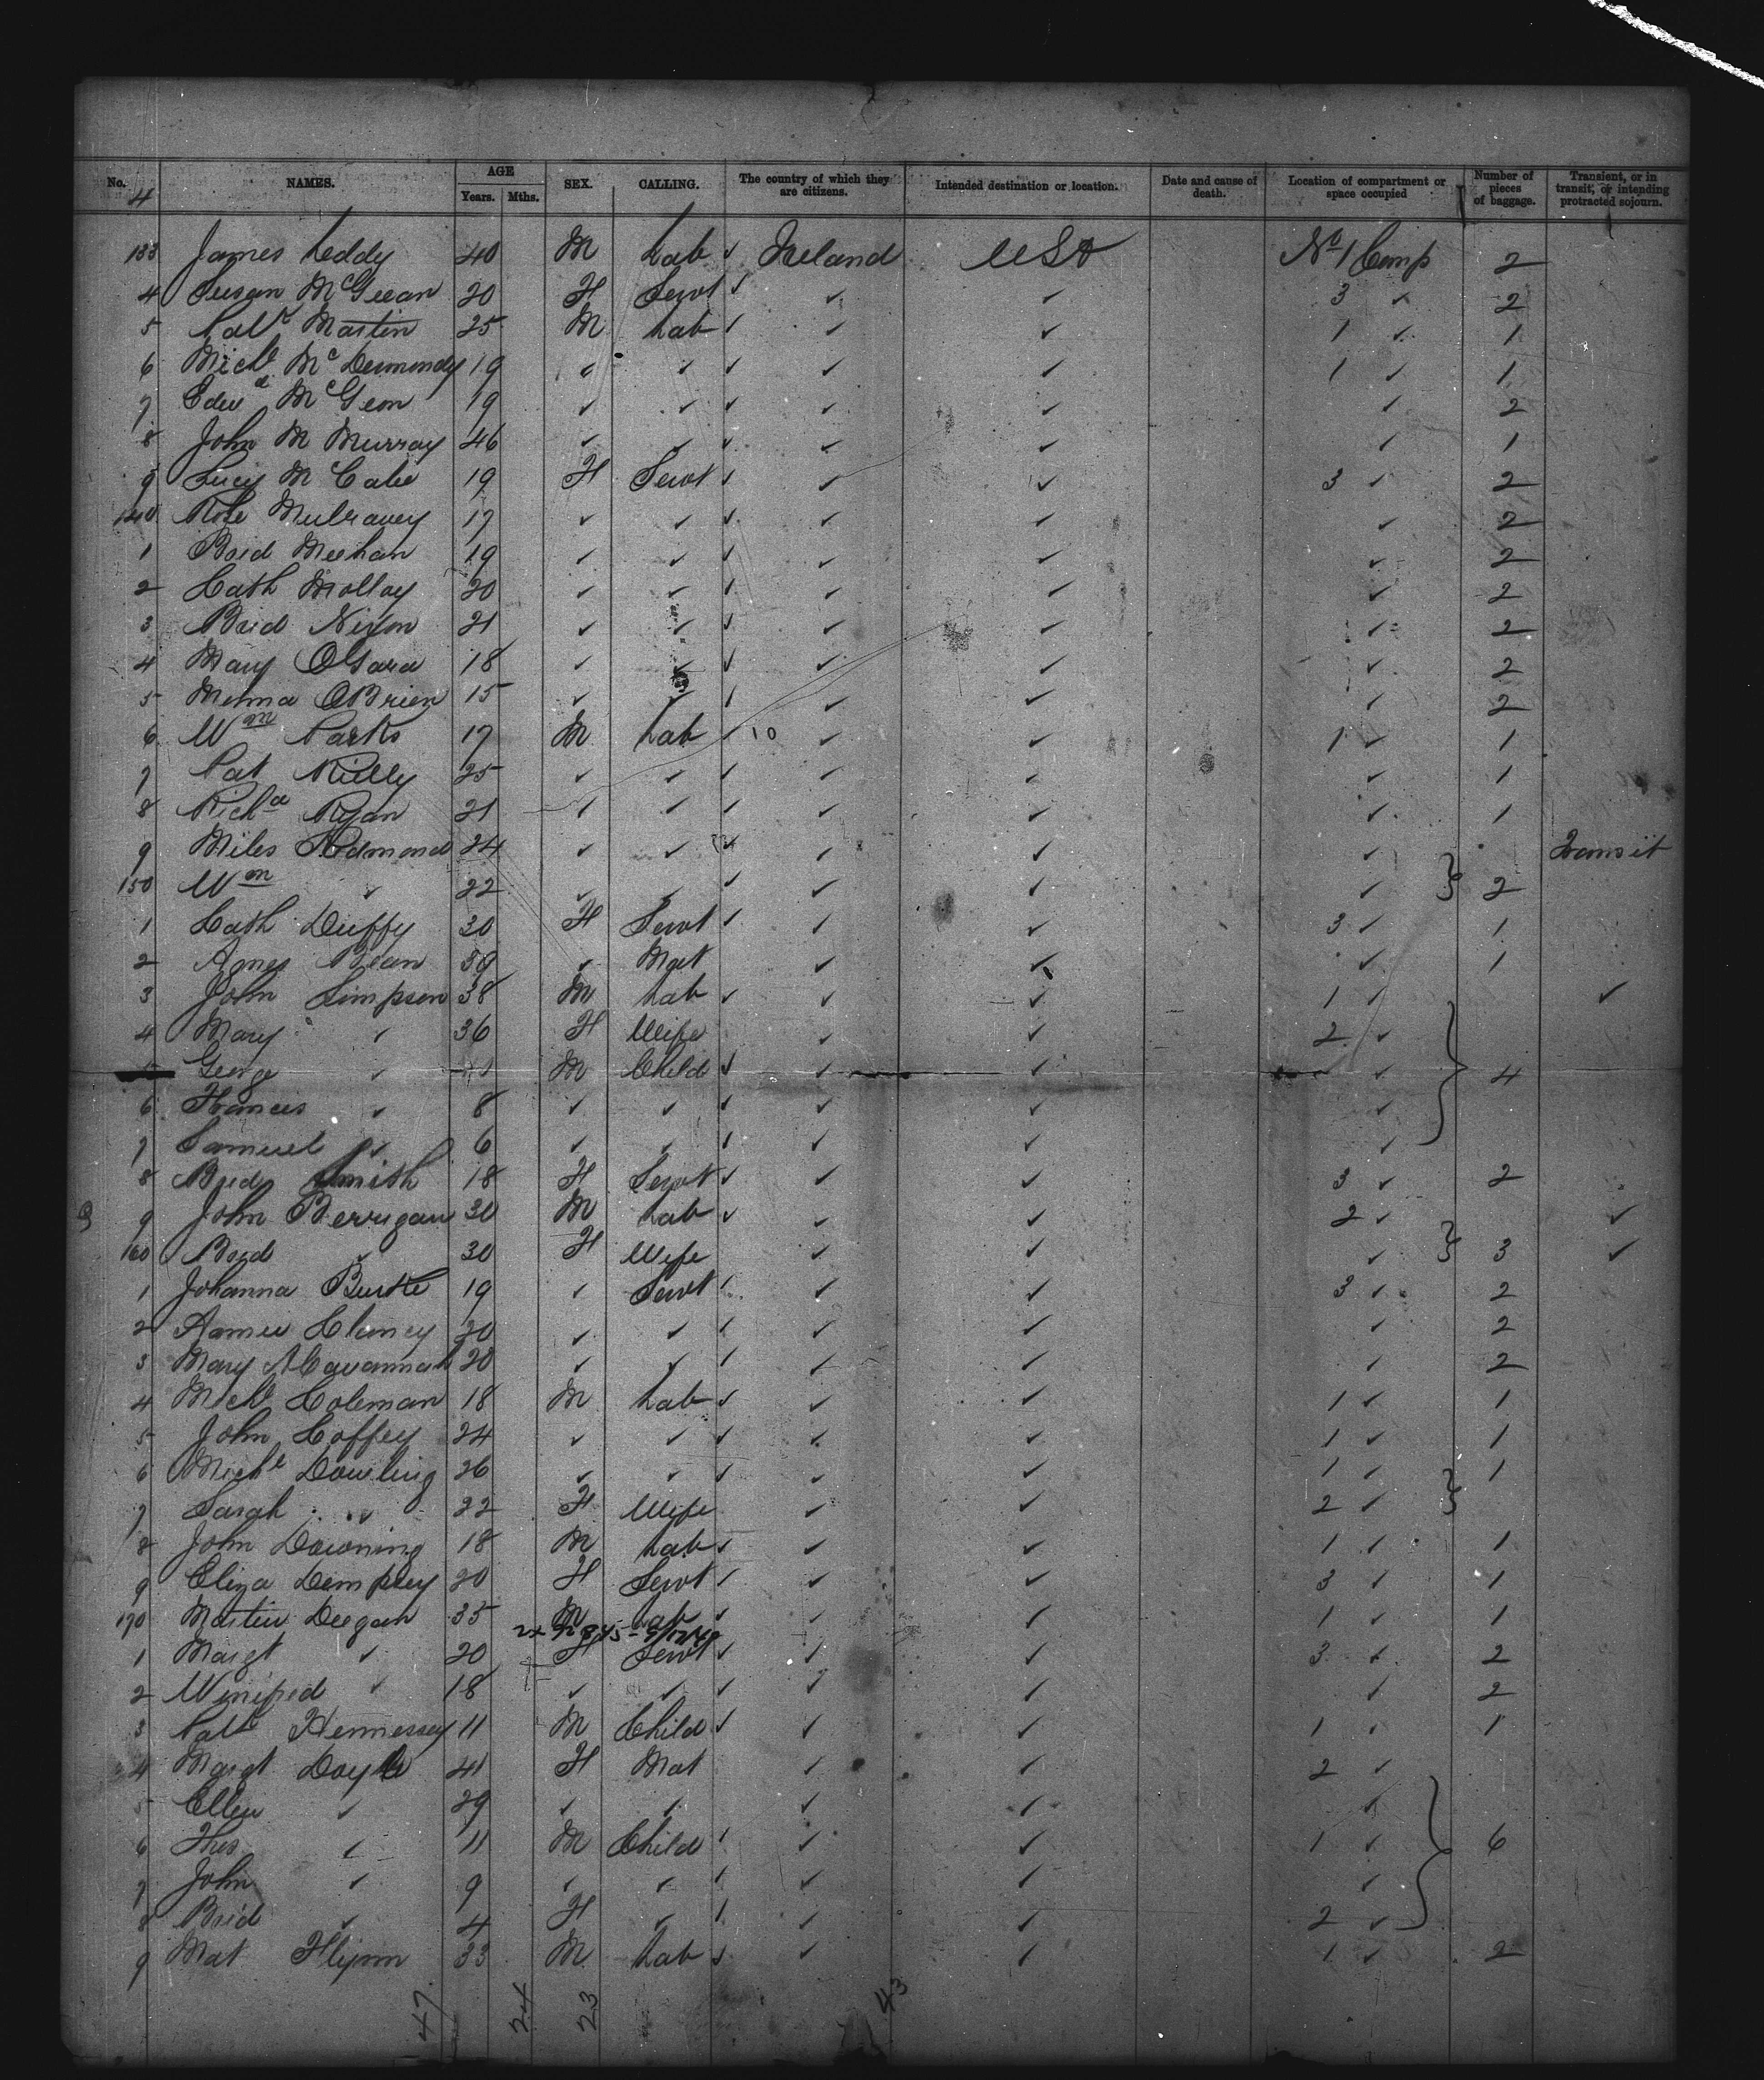 No. NAMES. AGE Years. Mths. SEX. CALLING. The country of which they are citizens. Intended destination or location. Date and cause of death. Location of compartment or space occupied Number of pieces of baggage. Transient, or in transit, or intending protracted sojourn.
4
133 James Leddy 40 M Lab ✓ Ireland USA No 1 Comp 2
4 Susan McGeean 20 F Servt ✓ ✓ ✓ 3 ✓ 2
5 Patk Martin 25 M Lab ✓ ✓ ✓ 1 ✓ 1
6 Michl McDermondy 19 ✓ ✓ ✓ ✓ ✓ 1 ✓ 1
7 Edwd McGeon 19 ✓ ✓ ✓ ✓ ✓ ✓ 2
8 John M Murray 46 ✓ ✓ ✓ ✓ ✓ ✓ 1
9 Lucy M Cabe 19 F Servt ✓ ✓ ✓ 3 ✓ 2
140 Rose Mulravey 17 ✓ ✓ ✓ ✓ ✓ ✓ 2
1 Brid Meehan 19 ✓ ✓ ✓ ✓ ✓ ✓ 2
2 Cath Molloy 20 ✓ ✓ ✓ ✓ ✓ ✓ 2
3 Brid Nixon 21 ✓ ✓ ✓ ✓ ✓ ✓ 2
4 Mary OGara 18 ✓ ✓ ✓ ✓ ✓ ✓ 2
5 OBrien 15 ✓ ✓ ✓ ✓ ✓ ✓ 2
6 Wm Parks 17 M Lab ✓ 10 ✓ ✓ 1 ✓ 1
7 Pat Reilly 25 ✓ ✓ ✓ ✓ ✓ ✓ 1
8 Richd Ryan 21 ✓ ✓ ✓ ✓ ✓ ✓ 1
9 Miles Redmond 24 ✓ ✓ ✓ ✓ ✓ ✓ Transit
150 Wm ✓ 22 ✓ ✓ ✓ ✓ ✓ ✓ 2
1 Cath Duffy 30 F Servt ✓ ✓ ✓ 3 ✓ 1
2 Agnes Bean 59 ✓ Mat ✓ ✓ ✓ 1
3 John Simpson 38 M Lab ✓ ✓ ✓ 1 ✓ ✓
4 Mary ✓ 36 F Wife ✓ ✓ 2 ✓
George ✓ M Child ✓ ✓ ✓ ✓ 4
6 Francis ✓ 8 ✓ ✓ ✓ ✓ ✓ ✓
7 Samuel ✓ 6 ✓ ✓ ✓ ✓ ✓ ✓
8 Brid Smith 18 F Servt ✓ ✓ ✓ 3 ✓ 2
9 John Berrigan 30 M Lab ✓ ✓ ✓ 2 ✓ ✓
160 Brid ✓ 30 F Wife ✓ ✓ ✓ 3 ✓
1 Johanna Burke 19 ✓ Servt ✓ ✓ ✓ 3 ✓ 2
2 Annie Clancy 20 ✓ ✓ ✓ ✓ ✓ ✓ 2
3 Mary A Cavannah 20 ✓ ✓ ✓ ✓ ✓ ✓ 2
4 Michl Coleman 18 M Lab ✓ ✓ ✓ 1 ✓ 1
5 John Coffey 24 ✓ ✓ ✓ ✓ ✓ 1 ✓ 1
6 Michl Dowling 26 ✓ ✓ ✓ ✓ ✓ 1 ✓ 1
7 Sarah ✓ 22 F Wife ✓ ✓ 2 ✓
8 John Downing 18 M Lab ✓ ✓ ✓ 1 ✓ 1
9 Eliza Dempsey 20 F Servt ✓ ✓ ✓ 3 ✓ 1
170 Martin Deegan 35 M Lab ✓ ✓ ✓ 1 ✓ 1
1 Margt ✓ 20 F Servt ✓ ✓ ✓ 3 ✓ 2
2 Winifred ✓ 18 ✓ ✓ ✓ ✓ ✓ ✓ 2
3 Patk Hennessey 11 M Child ✓ ✓ ✓ 1 ✓ 1
4 Margt Doyle 41 F Mat ✓ ✓ 2 ✓
5 Ellen ✓ 29 ✓ ✓ ✓ ✓ ✓
6 Thos ✓ 11 M Child ✓ ✓ ✓ 1 ✓ 6
7 John ✓ 9 ✓ ✓ ✓ ✓ ✓ ✓
8 Brid ✓ 4 F ✓ ✓ ✓ ✓ 2 ✓
9 Mat Flynn 33 M Lab ✓ ✓ ✓ 1 ✓ 2
47 24 23 43